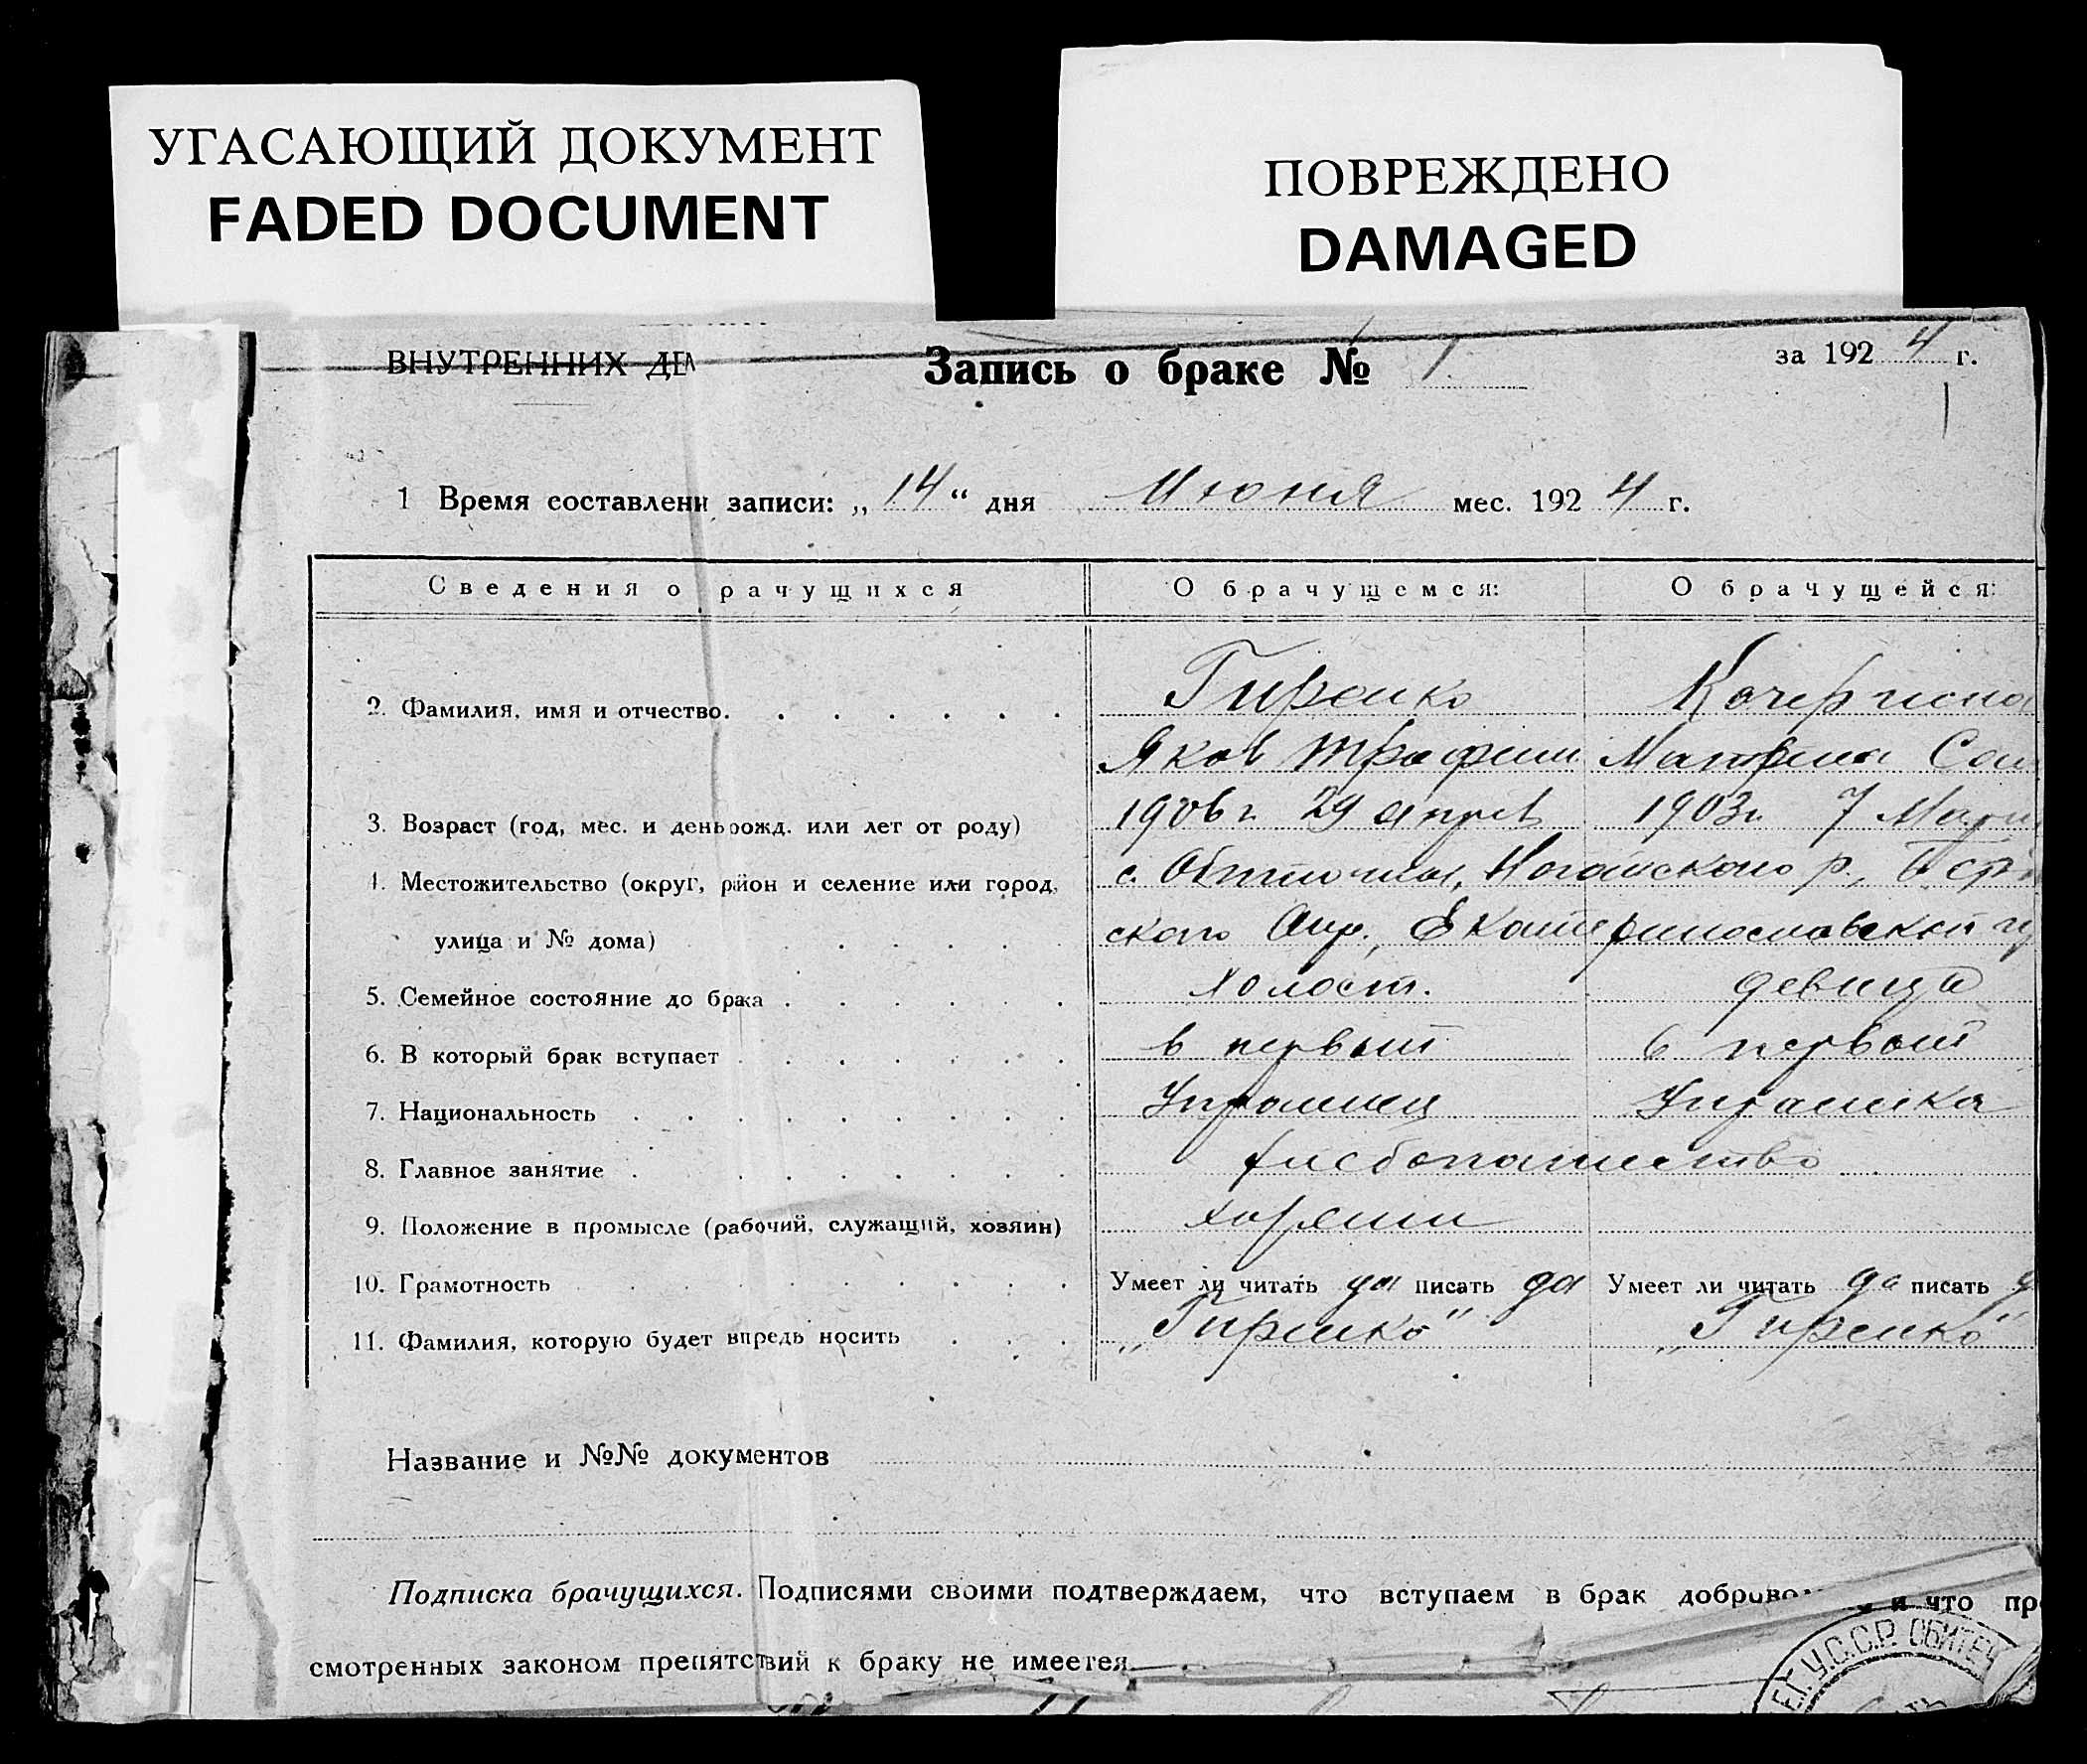 УГАСАЮЩИЙ ДОКУМЕНТ
FADED DOCUMENT
ПОВРЕЖДЕНО
DAMAGED
ВНУТРЕННИХ ДЕ
Запись о браке № 1 за 1924 г.
1
1 Время составлени записи: „14“ дня Июня мес. 1924 г.
Сведения о рачущихся О брачущемся: О брачущейся:
Гиренко
2. Фамилия, имя и отчество.
Яков Трофим
3. Возраст (год, мес. и день рожд. или лет от роду) 1906 г. 29 апрел 1903 г. 7 Мар
4. Местожительство (округ, район и селение или город, с. Обиточная, Ногайского р., Бер
улица и № дома) ского Окр., Екатеринославской гу
5. Семейное состояние до брака холост. девица
6. В который брак вступает в первый в первый
7. Национальность Украинец Украинка
8. Главное занятие хлебопашество
9. Положение в промысле (рабочий, служащий, хозяин) хозяин
10. Грамотность Умеет ли читать да писать да Умеет ли читать да писать д
11. Фамилия, которую будет впредь носить „Гиренко" „Гиренко"
Название и №№ документов
Подписка брачущихся. Подписями своими подтверждаем, что вступаем в брак доброво и что пр
смотренных законом препятствий к браку не имеется
У.С.С.Р. ОБИТОЧ